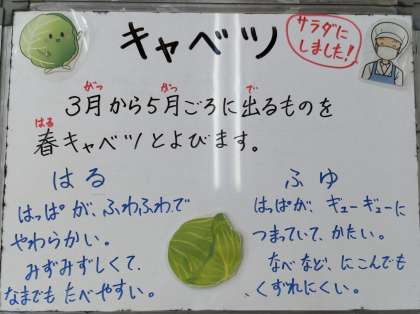 キャベツ
サラダに
しました!
3月から5月ごろに出るものを
がつ がつ で
春キャベツとよびます。
はる
はる
はっぱが、ふわふわで
やわらかい。
みずみずしくて、
なまでもたべやすい。
ふゆ
はっぱが、ギューギューに
つまっていて、かたい。
なべなど、にこんでも
くずれにくい。